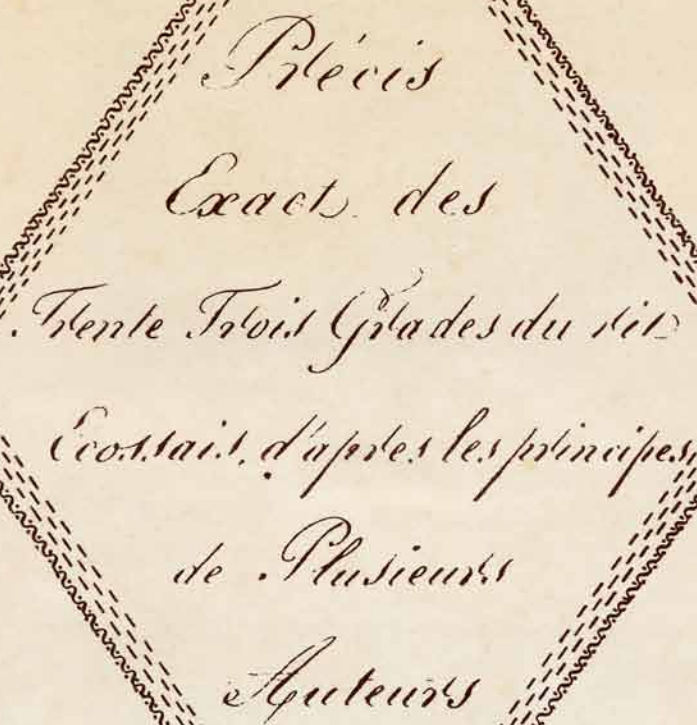 Précis
Exact des
Trente Trois Grades du rit
Ecossais, d'après les principes,
de Plusieurs
Auteurs